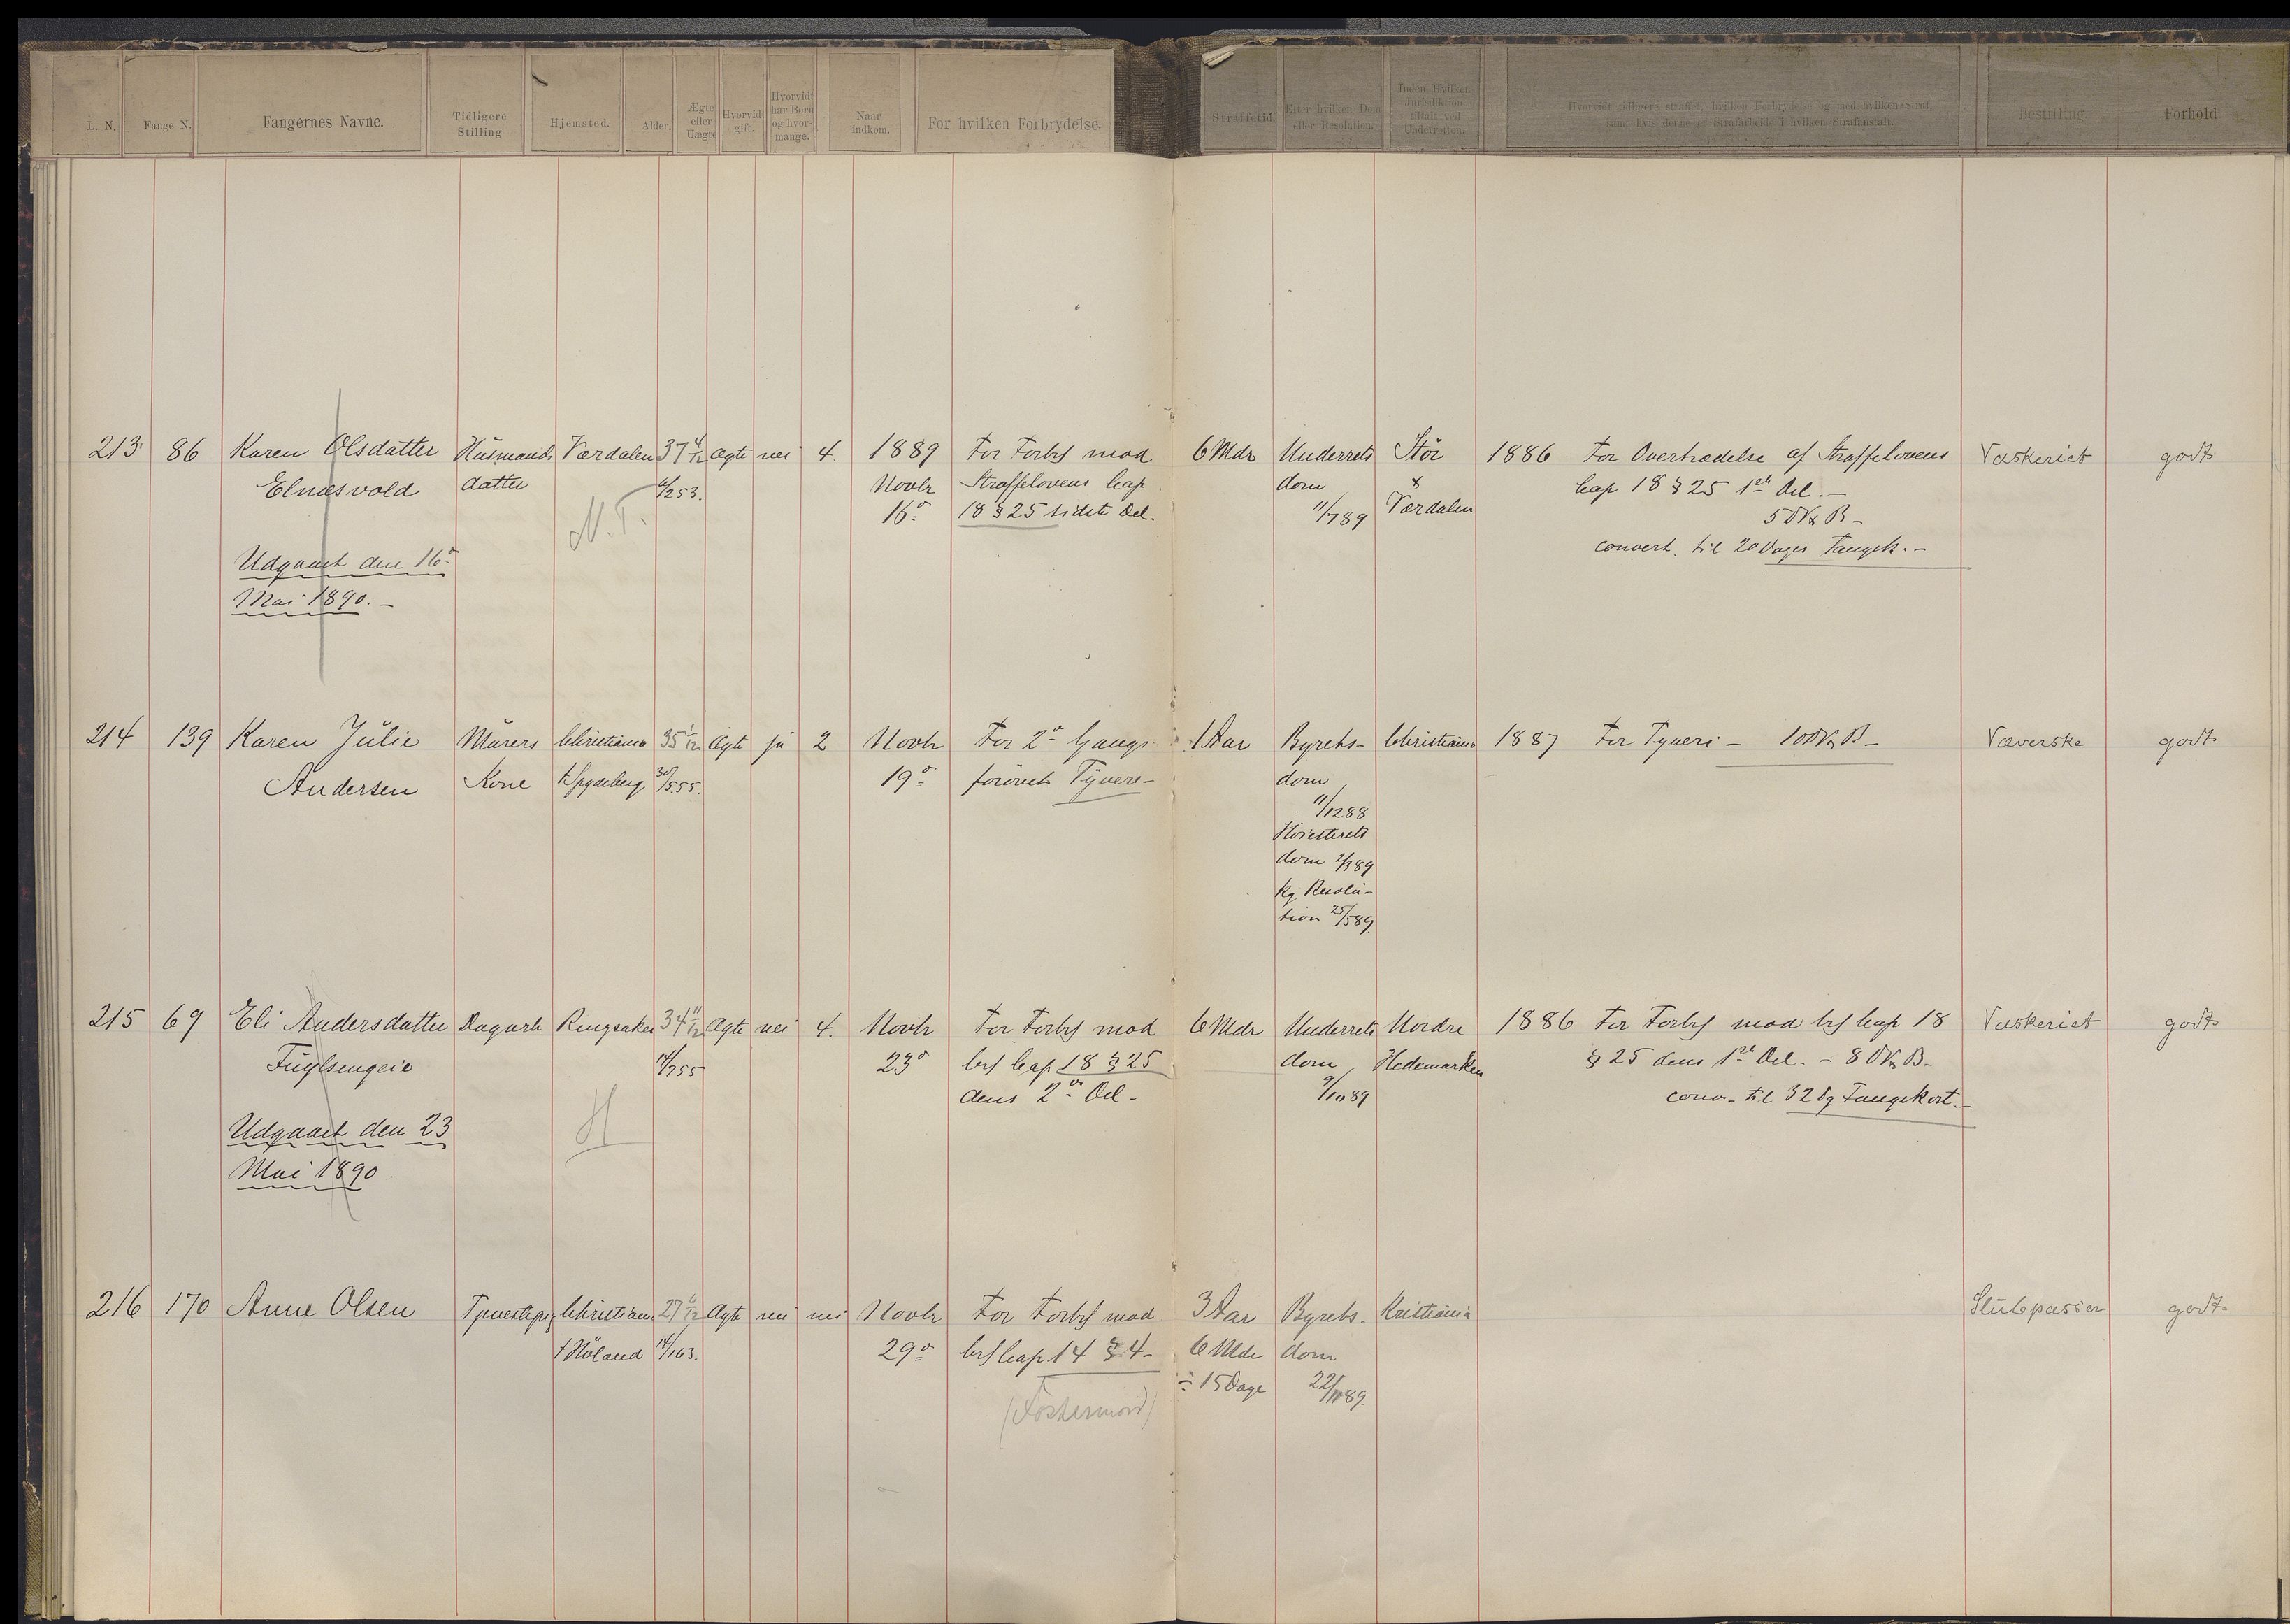 L. N. Fange N. Fangernes Navne. Tidligere Stilling Hjemsted. Alder. Ægte eller Uægte Hvorvidt gift. Hvorvidt har Børn og hvormange. Naar indkom. For hvilken Forbrydelse. Straffetid. Efter hvilken Dom eller Resolution. Inden Hvilken Jurisdiktion tiltalt ved Underretten. Hvorvidt tidligere straffet, hvilken Forbrydelse og med hvilken Straf, samt hvis denne er Strafarbeide i hvilken Strafanstalt. Bestilling. Forhold
213 86 Karen Olsdatter Husmands Værdalen 37 4/12 ægte nei 4. 1889 For Forbr mod 6 Mdr Underrets Stör 1886 For Overtrædelse af Straffelovens Vaskeriet godt
Elnæsvold datter 6/253. Novbr Straffelovens Cap dom & Cap 18 § 25 1ste Del. –
N. T. 16de 18 § 25 sidste Del. 11/789 Værdalen 5 D Vg B –
convert. til 20 Dages Fængsl. –
Udgaaet den 16de
Mai 1890. –
214 139 Karen Julie Murers Christiania 35 1/12 ægte ja 2 Novbr For 2den Gangs 1 Aar Byrets- Christiania 1887 For Tyveri – 10 D Vg B – Væverske godt
Andersen Kone f Spydeberg 30/555. 19de forövet Tyveri – dom
11/1288
Höiesterets
dom 2/389
kg Resolu-
tion 25/589.
215 69 Eli Andersdatter Dagarb Ringsaker 34 11/12 ægte nei 4. Novbr For Forbr mod 6 Mdr Underrets Nordre 1886 For Forbr mod Crl Cap 18 Vaskeriet godt
Fuglsengeie 14/755 23de Crl Cap 18 § 25 dom Hedemarken § 25 dens 1ste Del. – 8 D Vg B –
dens 2den Del – 9/1089 conv. til 32 Dg Fængsl
Udgaaet den 23 H
Mai 1890.
216 170 Anne Olsen Tjenestepig Christiania 27 ægte nei nei Novbr For Forbr mod 3 Aar Byrets- Kristiania godt
f Höland 14/163. 29de Crl Cap 14 § 4 – 6 Mdr dom
÷ 15 Dage 22/1189.
(Fostermord)